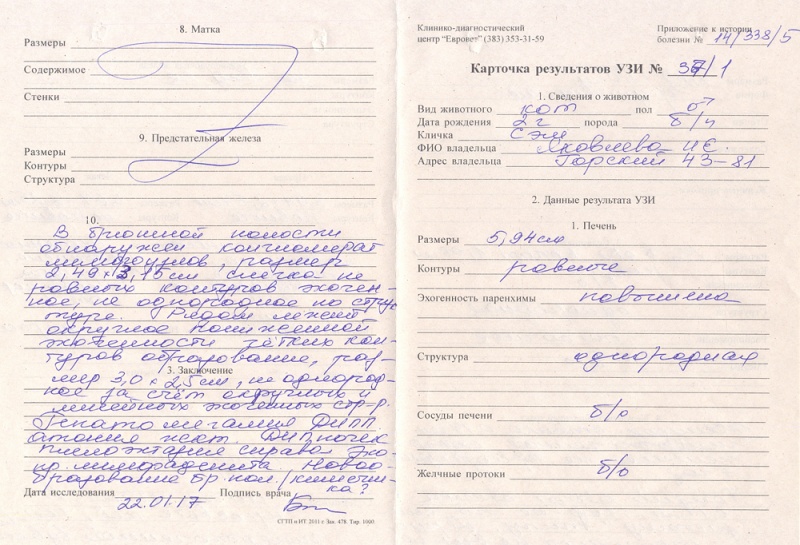 8. Матка
Размеры
Содержимое
Стенки
9. Предстательная железа
Размеры
Контуры
Структура
10.
В брюшной полости
обнаружен конгломерат
лимфоузлов, размер
2,49 х 3,15 см слегка не
ровных контуров эхоген-
ное, не однородное по струк
туре. Рядом лежит
округлое пониженной
эхогенности чётких кон-
туров образование, раз-
3. Заключение
мер 3,0 х 2,5 см, не однород-
ное за счёт округлых и
линейных эхогенных стр-р.
Гепатомегалия ДИПП.
Атония жел. ДИП почек
пиелоэктазия справа Эхо-
пр. лимфаденита. Новоо-
бразование бр. пол. /кишечни-
ка?
Дата исследования 22.01.17 Подпись врача
СГТП и ИТ 2011 г. Зак. 478. Тир. 1000.
Клинико-диагностический
центр "Евровет" (383) 353-31-59
Приложение к истории
болезни № 14/338/5
Карточка результатов УЗИ № 37/1
1. Сведения о животном
Вид животного кот пол ♂
Дата рождения 2 г порода б/п
Кличка Сэм
ФИО владельца Яковлева И.Е.
Адрес владельца Горский 43-81
2. Данные результата УЗИ
1. Печень
Размеры 5,94 см
Контуры ровные
Эхогенность паренхимы повышена
Структура однородная
Сосуды печени б/о
Желчные протоки б/о